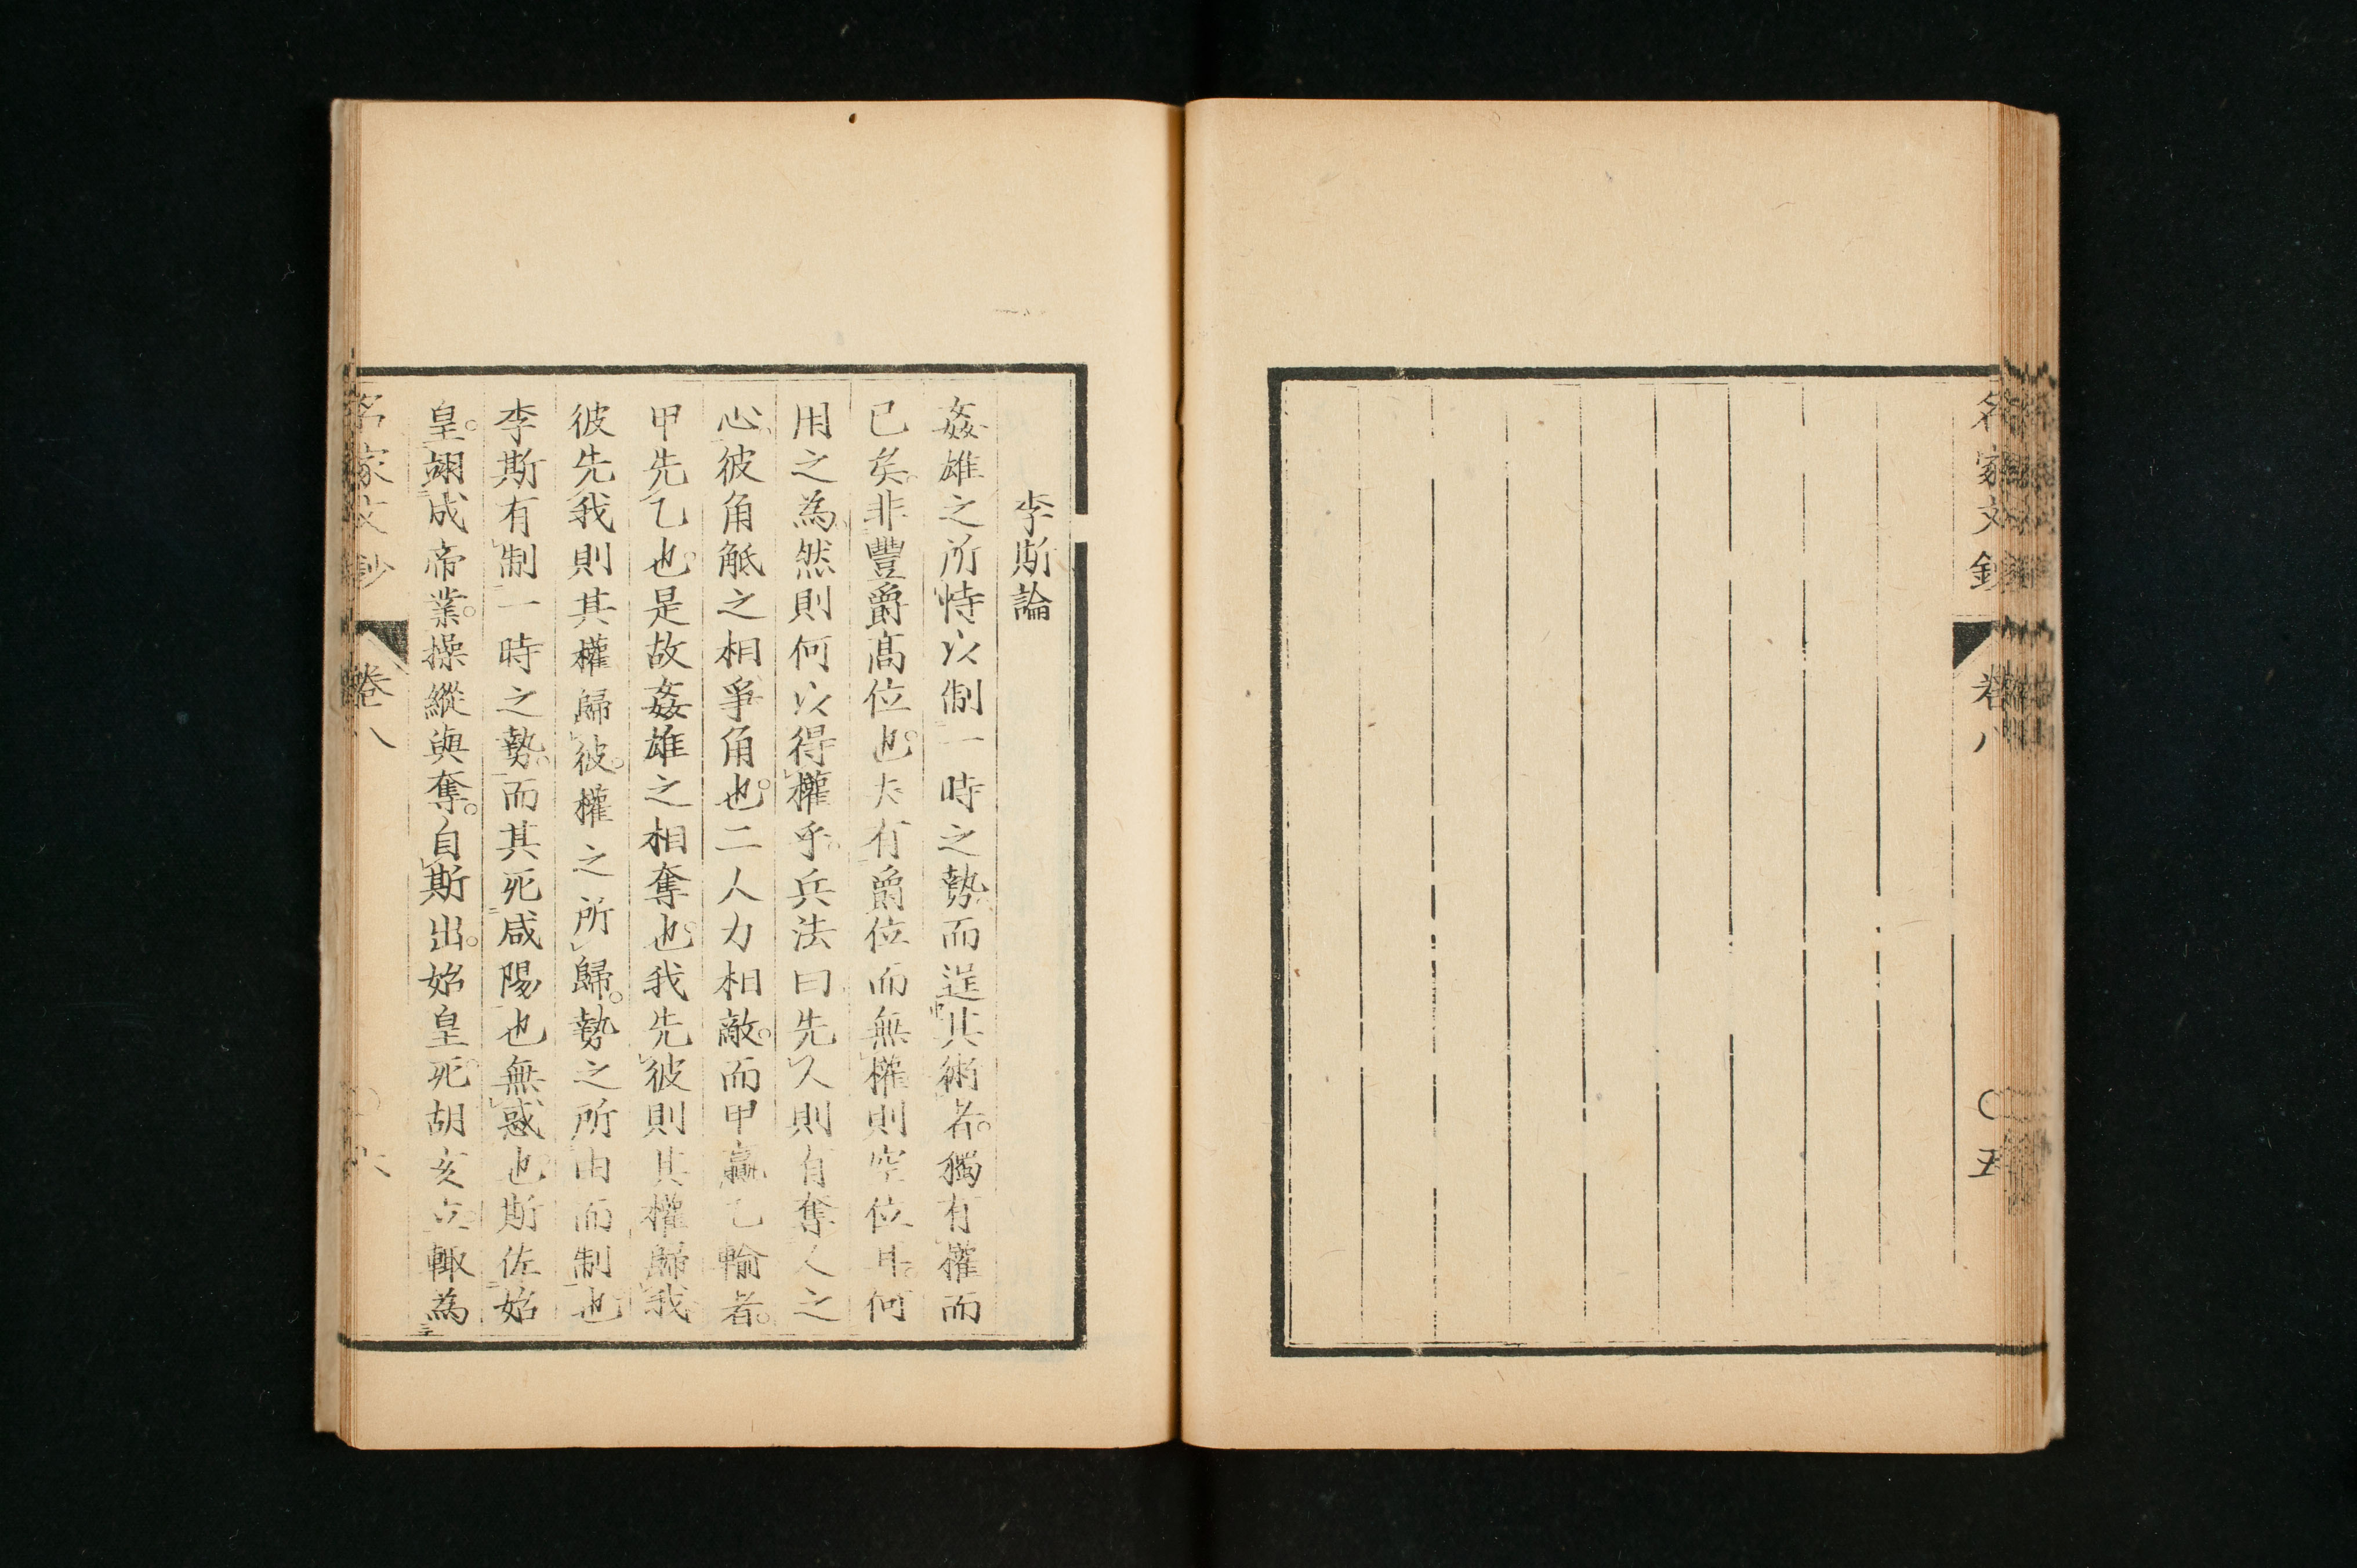 名家文鈔 卷八 〇五
李斯論
姦雄之所恃以制一時之勢而逞其術者。獨有權而
已矣。非豐爵高位也。夫有爵位而無權則空位耳。何
用之為。然則何以得權乎。兵法曰先人則有奪人之
心。彼角觝之相爭角也。二人力相敵。而甲贏乙輸者。
甲先乙也。是故姦雄之相奪也。我先彼則其權歸我
彼先我則其權歸彼。權之所歸。勢之所由而制也
李斯有制一時之勢。而其死咸陽也無惑也。斯佐始
皇。翊成帝業。操縱與奪。自斯出。始皇死。胡亥立。輙為
名家文鈔 卷八 〇六